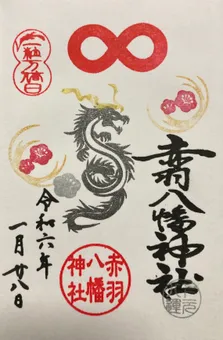 一粒万倍日
赤羽八幡神社
令和六年
一月廿八日
赤羽
八幡
神社